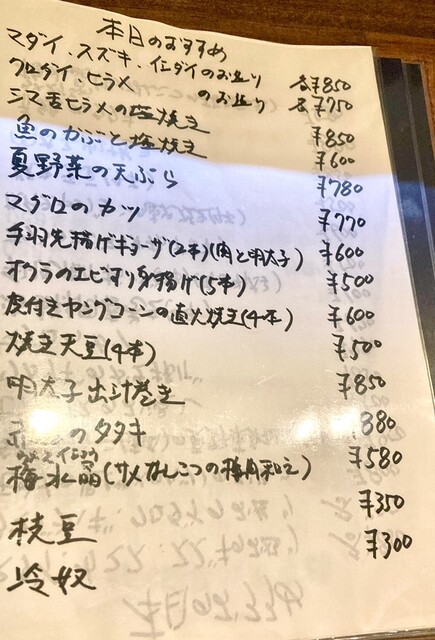 本日のおすすめ
マダイ、スズキ、イシダイのお造り 各¥850
クロダイ、ヒラメ のお造り 各¥750
シマ舌ヒラメの塩焼き ¥850
魚のかぶと塩焼き ¥600
夏野菜の天ぷら ¥780
マグロのカツ ¥770
手羽先揚げギョーザ(2本)(肉と明太子) ¥600
オクラのエビすり身揚げ(5本) ¥500
皮付きヤングコーンの直火焼き(4本) ¥600
焼き天豆(4本) ¥500
明太子出汁巻き ¥850
のタタキ 880
ウメスイショウ
梅水晶(サメなんこつの梅肉和え) ¥580
枝豆 ¥350
冷奴 ¥300